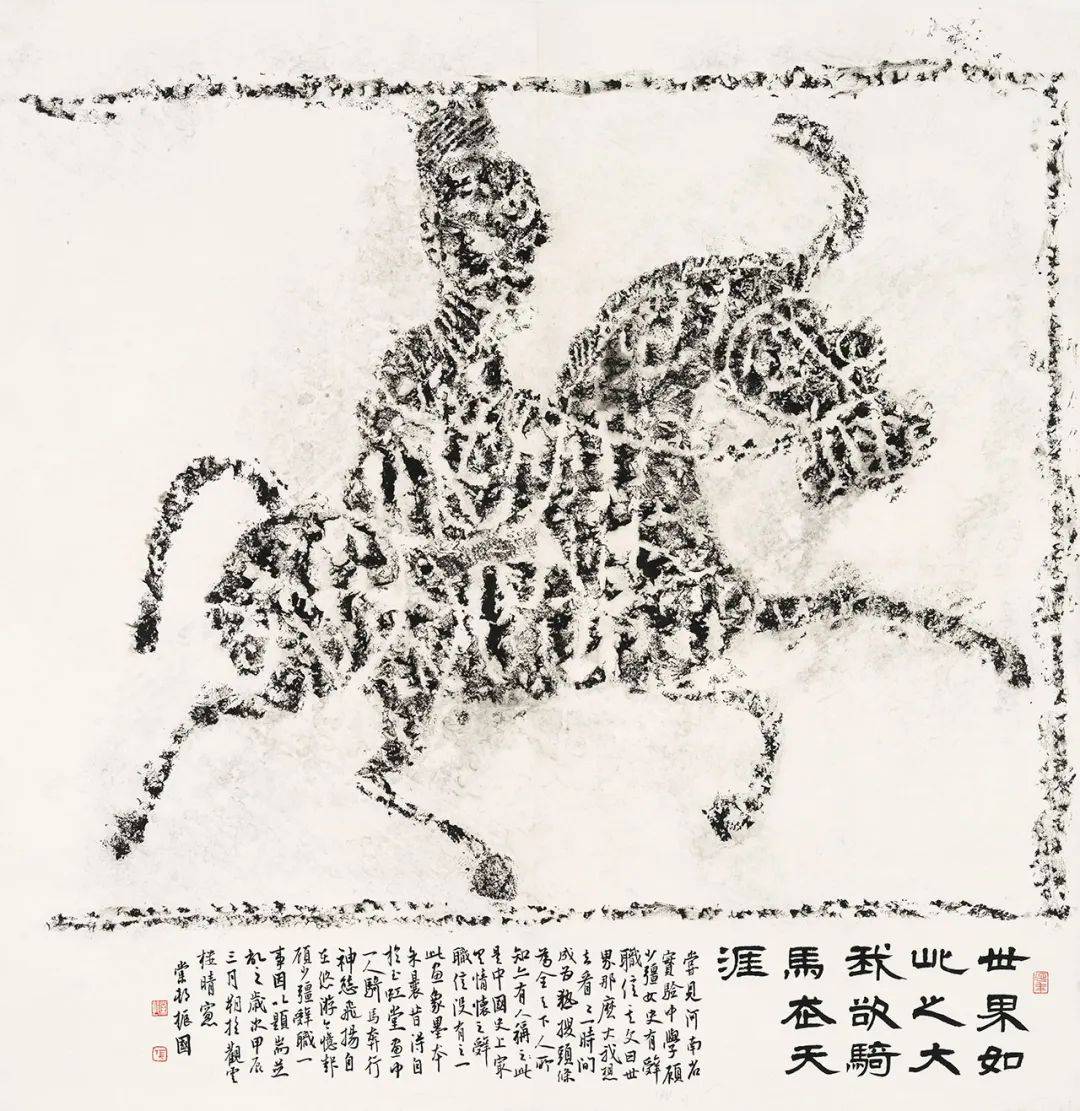 世果如
此之大
我欲騎
馬走天
涯
嘗見河南省
實驗中學顧
少彊女史有辭
職信其文曰世
界那麼大我想
去看看一時間
成為熱搜頭條
為全天下人所
知亦有人稱之此
是中國史上最
具情懷之辭
職信沒有之一
此畫象墨本
余曩昔得自
於玉虹堂畫中
一人騎馬奔行
神態飛揚自
在悠游令憶起
顧少彊辭職一
事因以題耑並
記之歲次甲辰
三月朔於觀雲
樓晴窗
棠邨振國